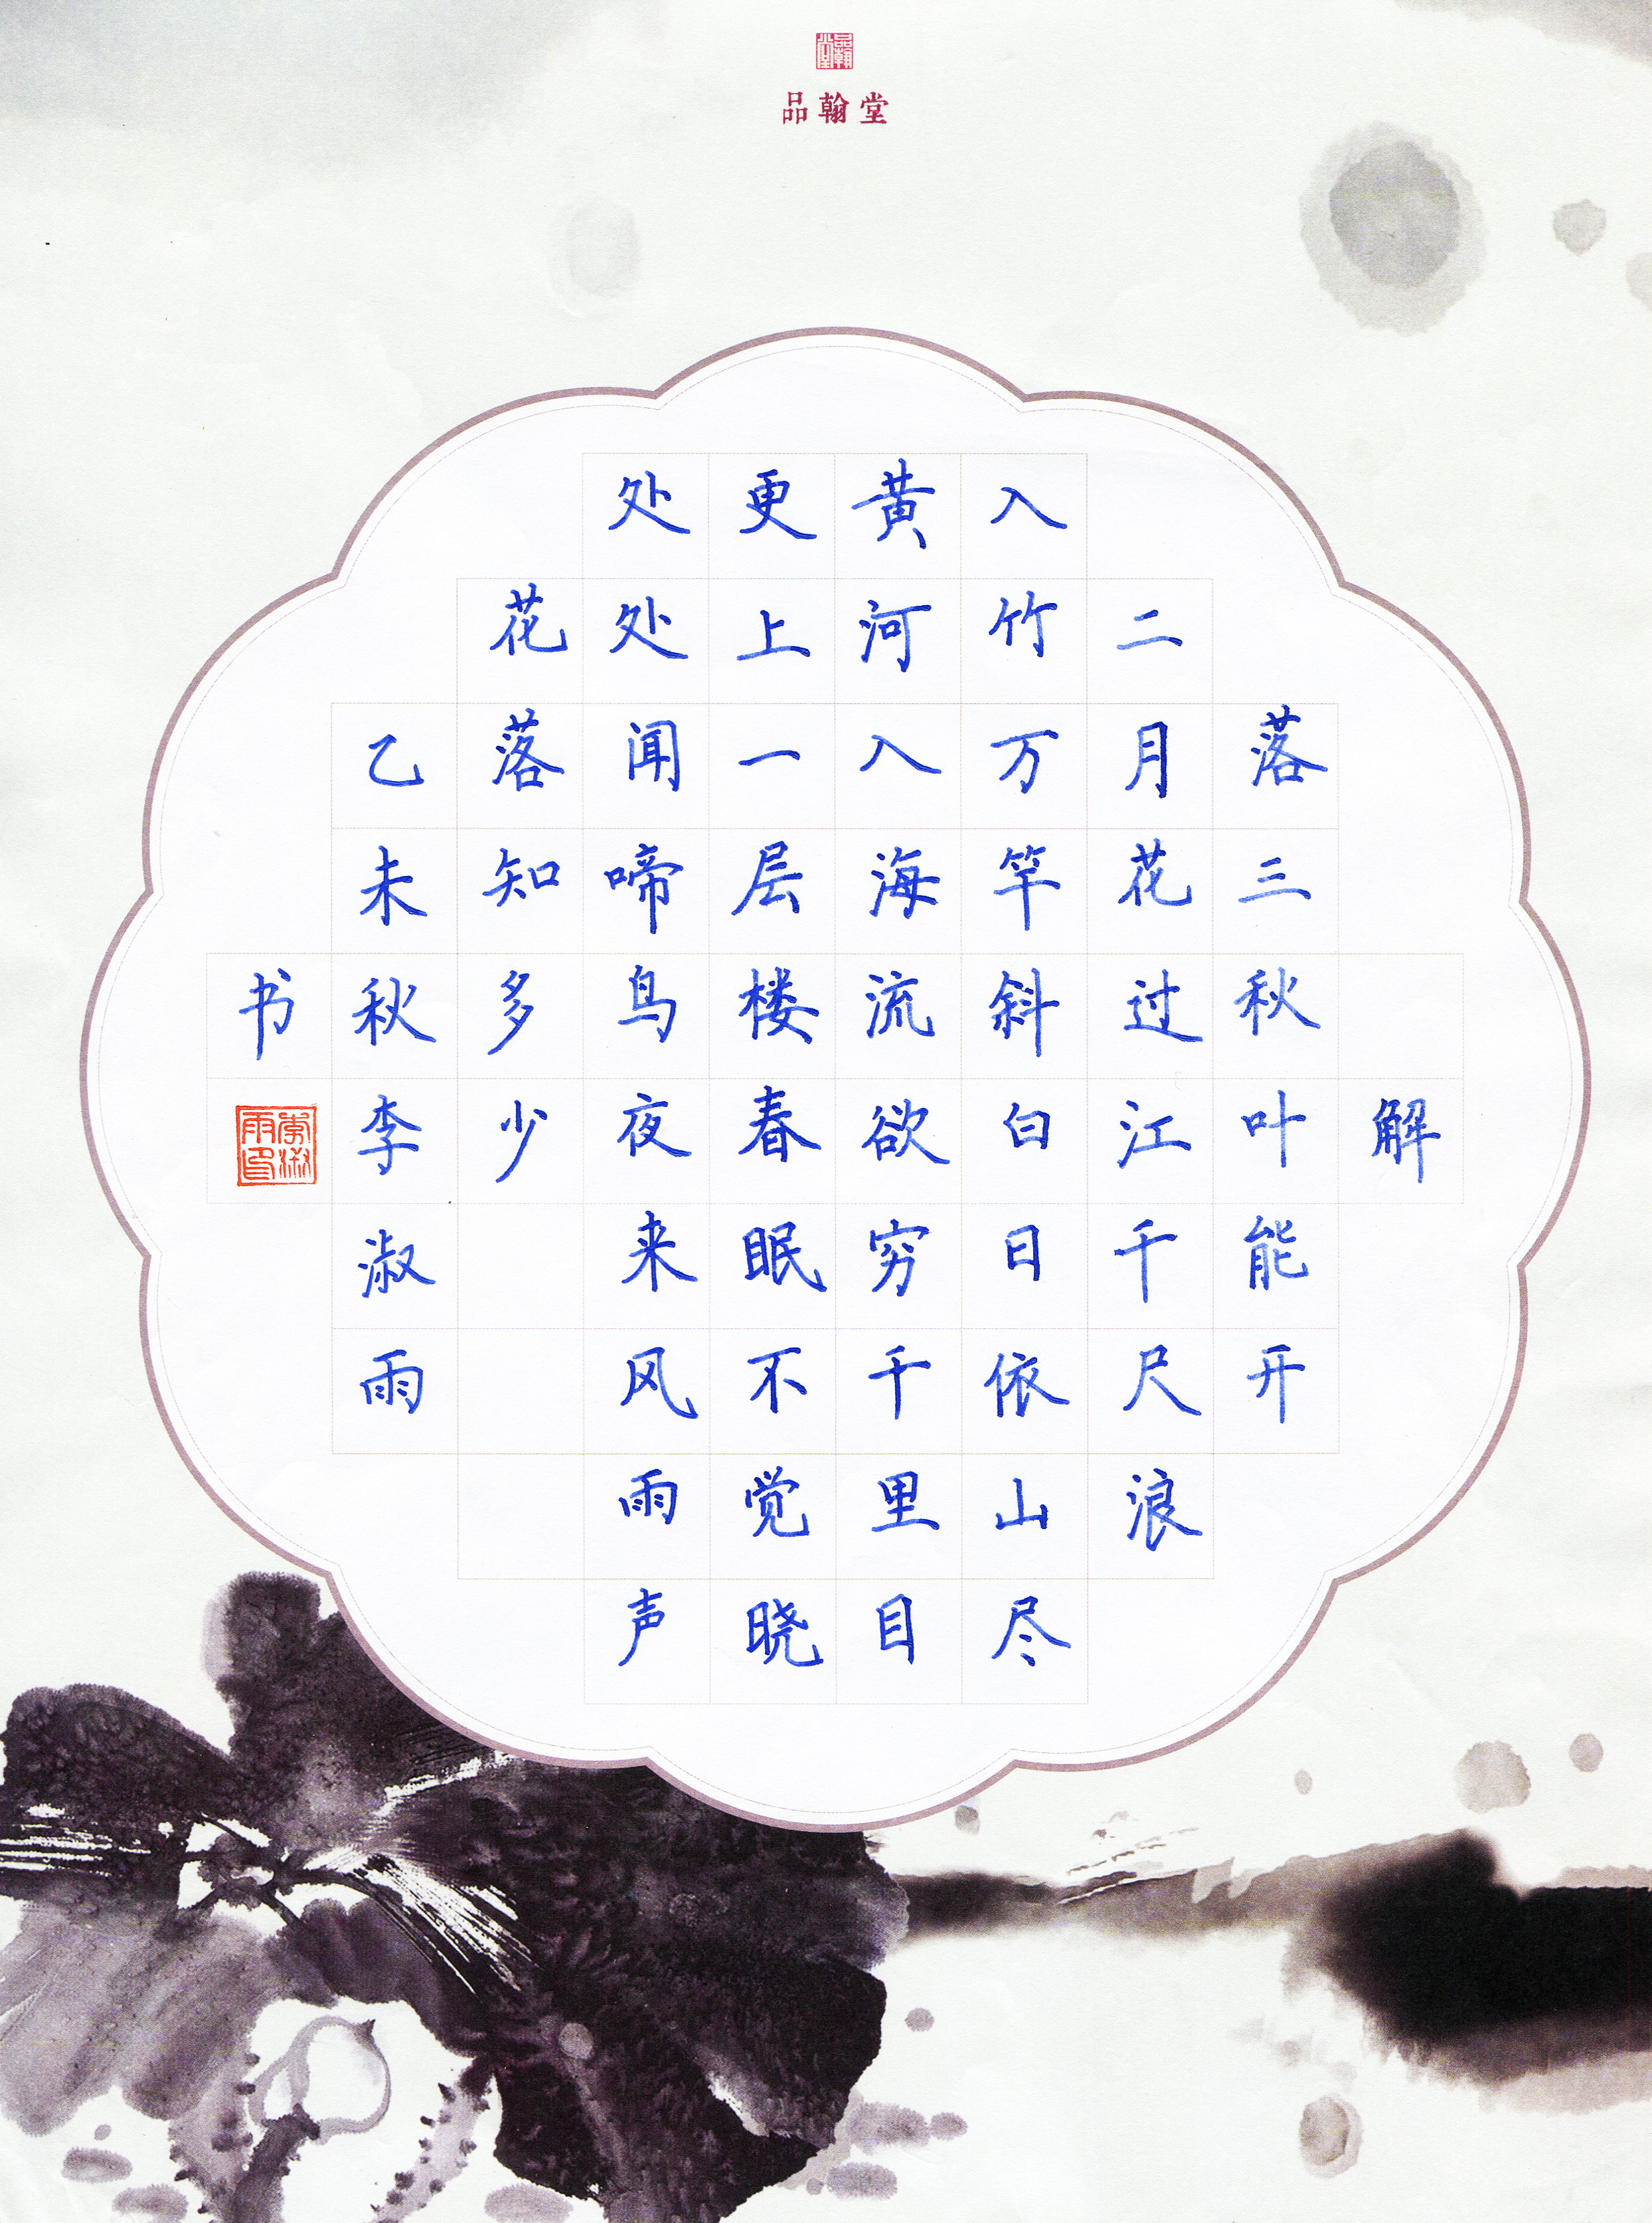 品翰堂
解
落三秋叶能开
二月花过江千尺浪
入竹万竿斜白日依山尽
黄河入海流欲穷千里目
更上一层楼春眠不觉晓
处处闻啼鸟夜来风雨声
花落知多少
乙未秋李淑雨
书
李淑雨印